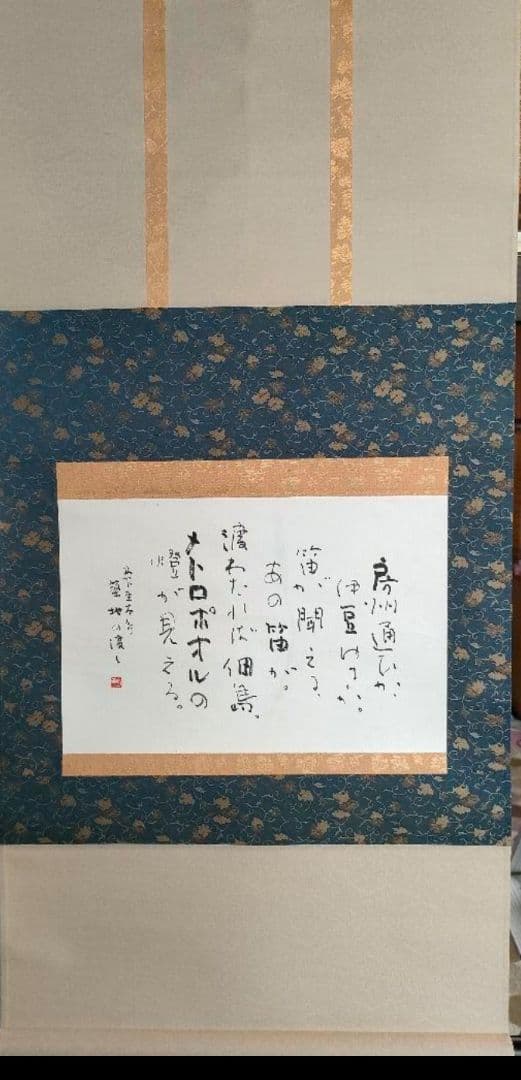 房州通ひか、
伊豆ゆきか。
笛が聞える、
あの笛が。
渡わたれば佃島、
メトロポオルの
燈が見える。
木下杢太郎
築地の渡し